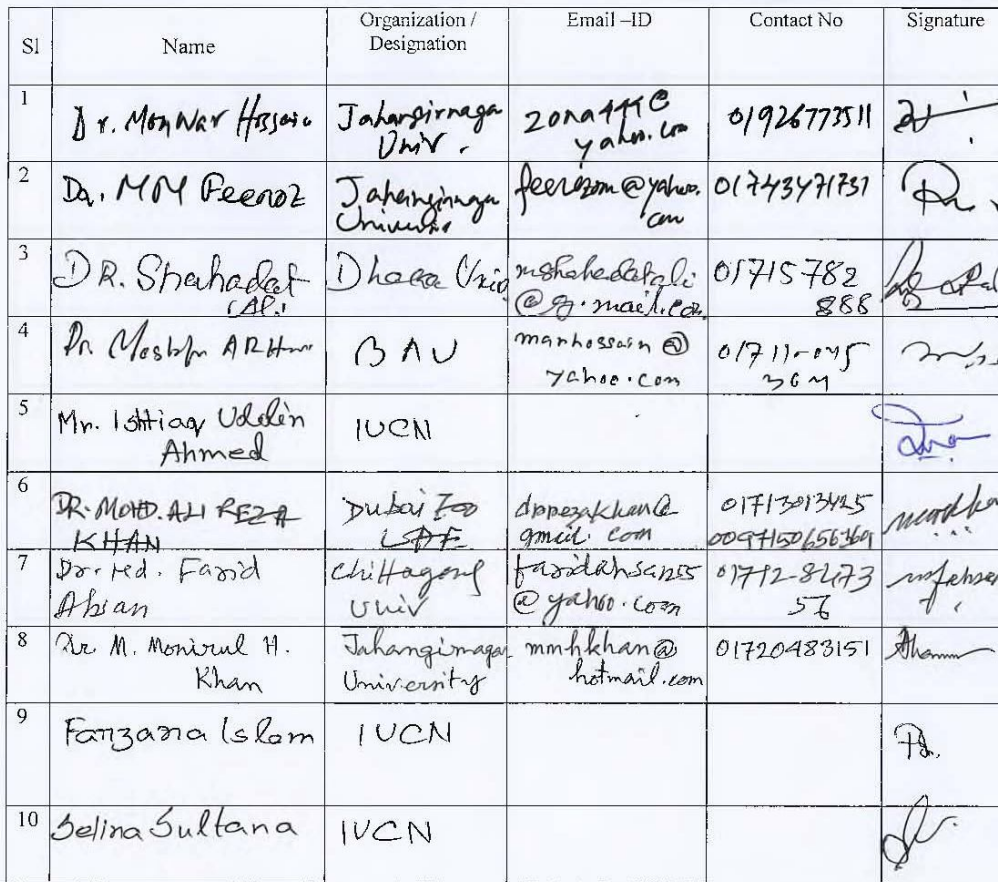 Sl Name Organization / Designation Email –ID Contact No Signature
1 Dr. Monwar Hossain Jahangirnagar Univ. yahoo.com 01926773511
2 Dr. MM Feeroz Jahangirnagar feerozmm@yahoo.com 01743471731
3 DR. Shahadat Ali Dhaka Univ mshahadatali@g.mail.com 01715782888
4 Dr. Mostafa BAU manhossain@yahoo.com 01711-045
5 Mr. Ishtiaq Uddin Ahmed IUCN
6 DR. MOHD. ALI REZA KHAN Dubai Zoo UAE drrezakhan@gmail.com 01713013425
7 Dr. Md. Farid Ahsan Chittagong Univ faridahsan55@yahoo.com
8 Dr. M. Monirul H. Khan Jahangirnagar University mmhkhan@hotmail.com 01720483151
9 Farzana Islam IUCN
10 Selina Sultana IUCN